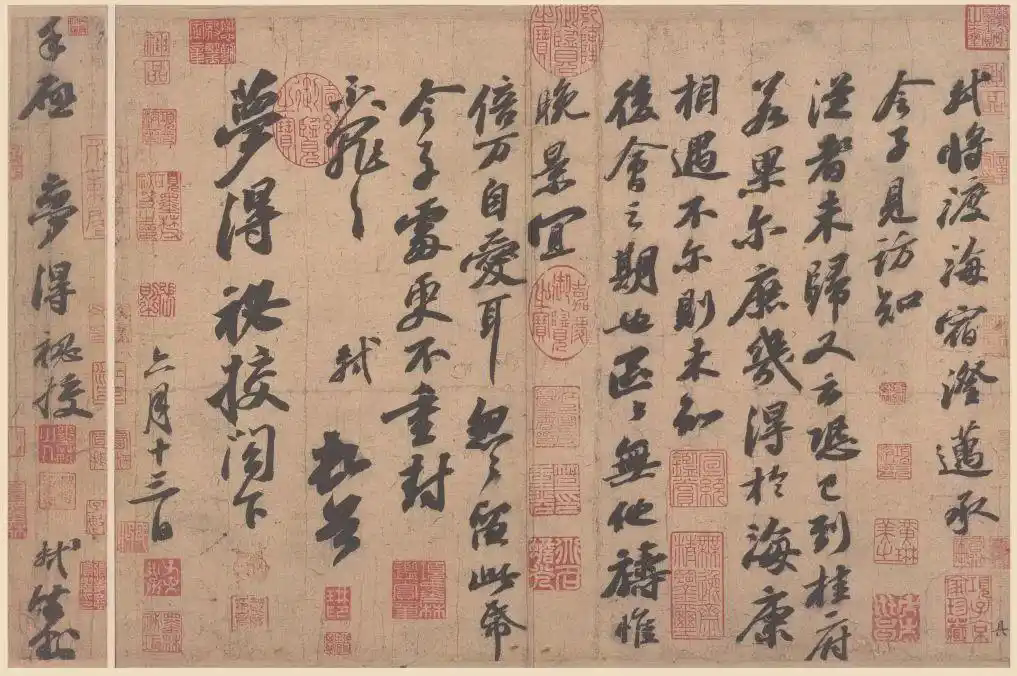 軾將渡海宿澄邁承
令子見訪知
從者未歸又云恐已到桂府
若果尔庶幾得於海康
相遇不尔則未知
後會之期也區々無他禱惟
晚景宜
倍万自愛耳怱々留此帋
令子處更不重封
不罪々 軾 頓首
夢得祕校閤下
六月十三日
手啟 夢得祕校 軾謹封